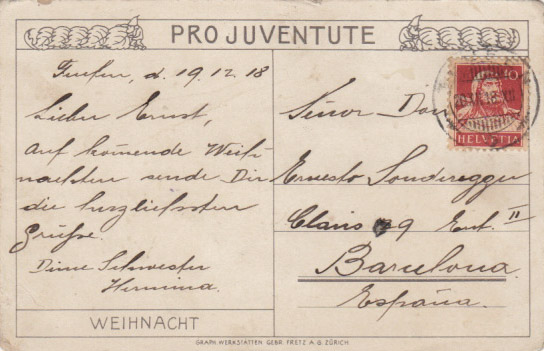 PRO JUVENTUTE
Teufen, d. 19.12.18
Lieber Ernst,
Auf kommende Weih-
nachten sende Dir
die herzliebsten
Grüsse.
Deine Schwester
Hermina.
WEIHNACHT
Senor Don
Ernesto Sonderegger
Claris 99 Ent. II
Barcelona
España.
10
HELVETIA
GRAPH. WERKSTÄTTEN GEBR. FRETZ A.G. ZÜRICH